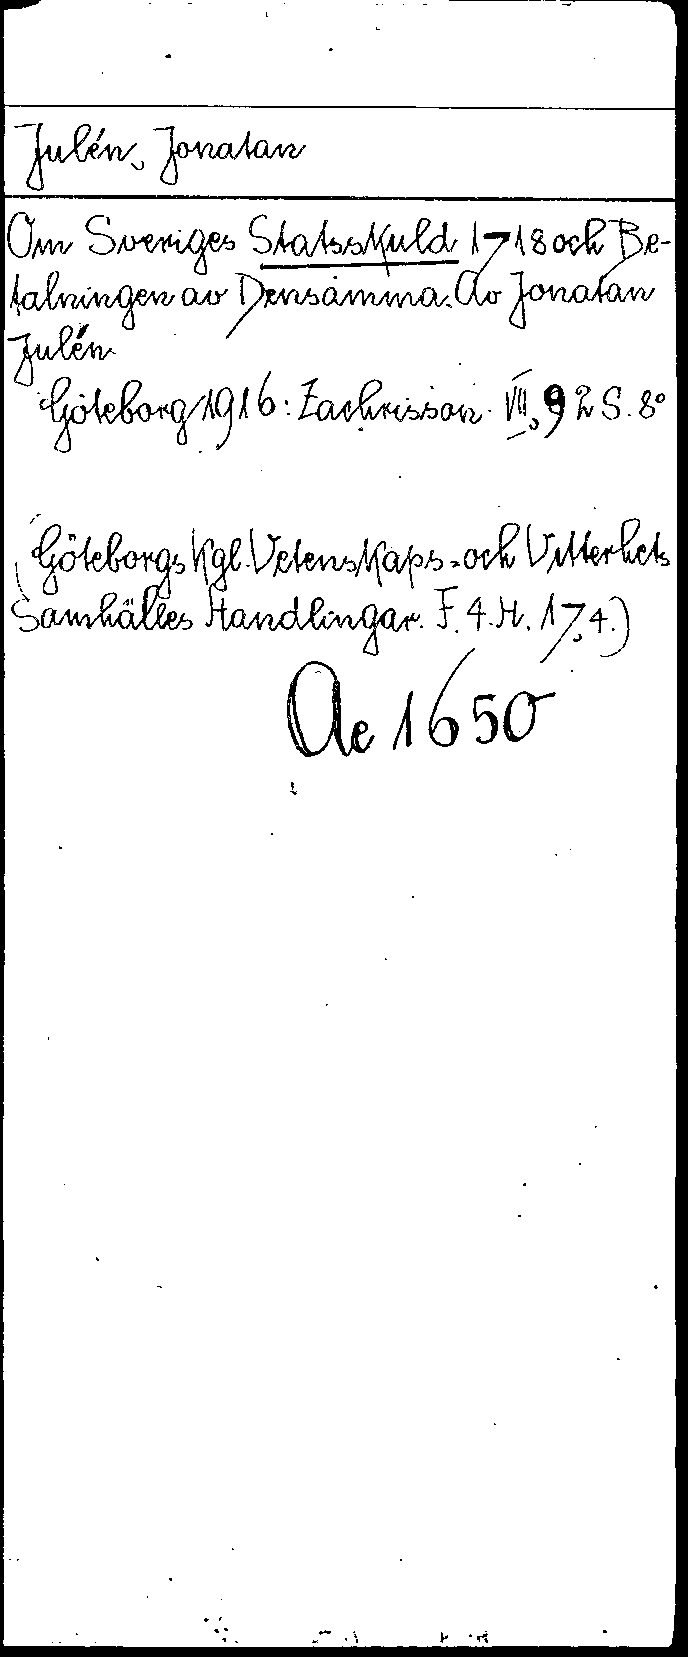 Julén, Jonatan
Om Sveriges Statsskuld 1718 och Be-
talningen av Densamma. Av Jonatan
Julén.
Göteborg 1916: Zachrisson. VII, 92 S. 8°
(Göteborgs Kgl. Vetenskaps- och Vitterhets
Samhälles Handlingar. F. 4. H. 17,4.)
Ae 1650